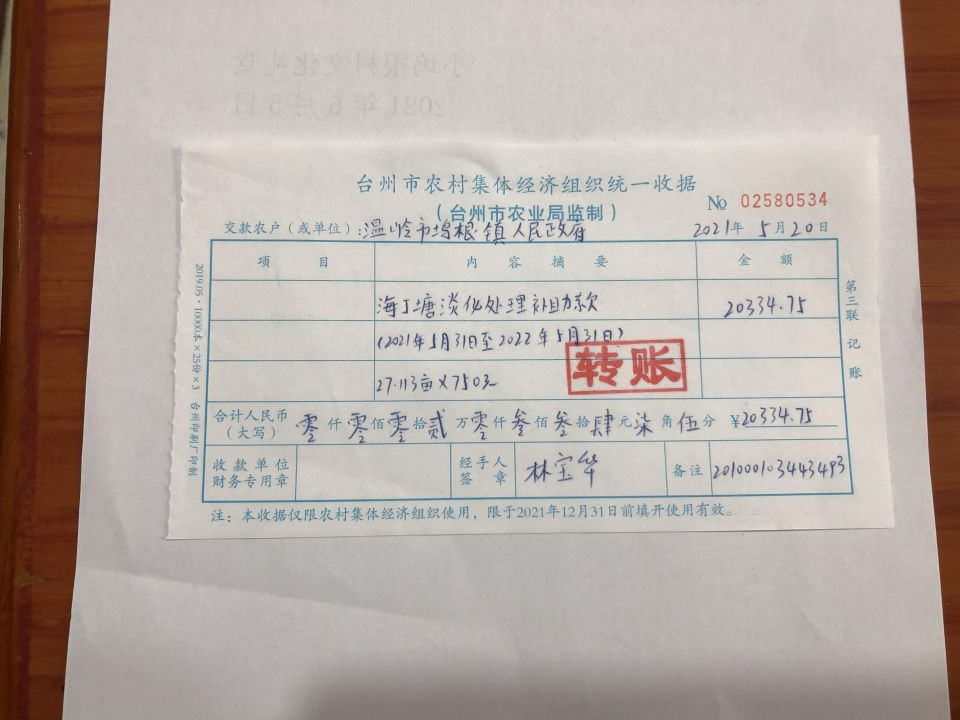 小坞根村文化礼堂
2021年6月5日
台州市农村集体经济组织统一收据
(台州市农业局监制)
No 02580534
交款农户(或单位):温岭市坞根镇人民政府
2021年5月20日
项 目 内 容 摘 要 金 额
海丁塘淡化处理补助款 20334.75
(2021年5月31日至2022年5月31日)
27.113亩×750元
转账
合计人民币(大写) 零仟零佰零拾贰万零仟叁佰叁拾肆元柒角伍分 ¥20334.75
收款单位财务专用章
经手人签章 林宝华
备注 201000103443493
注:本收据仅限农村集体经济组织使用,限于2021年12月31日前填开使用有效。
第三联 记账
2019.05·10000本×25份×3 台州印刷厂印制